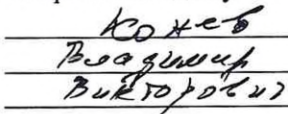 Кожев
Владимир
Викторович